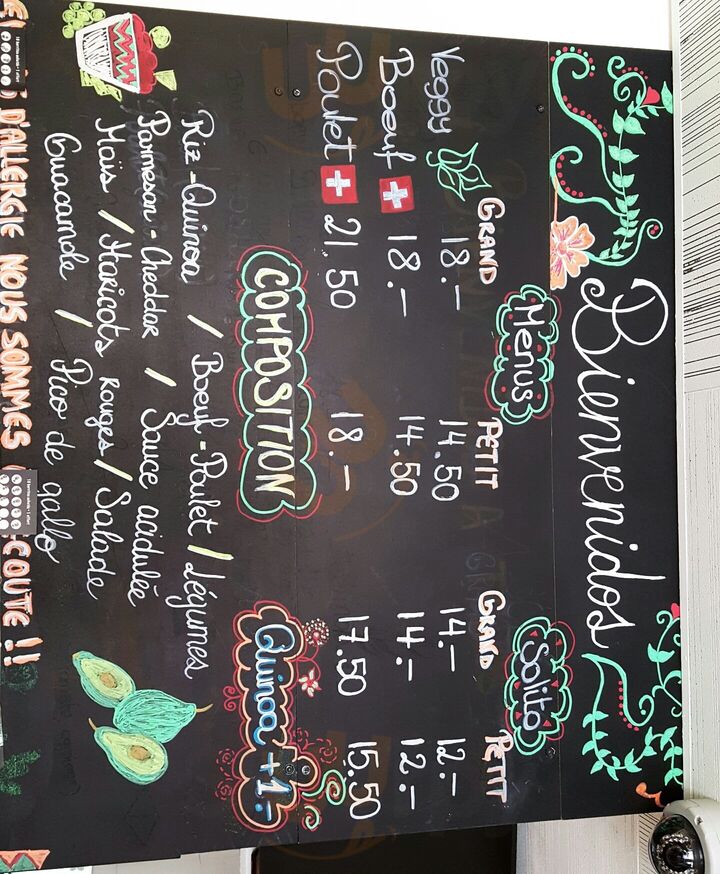 Bienvenidos
Menus Solito
GRAND PETIT GRAND PETIT
Veggy 18.- 14.50 14.- 12.-
Boeuf 18.- 14.50 14.- 12.-
Poulet 21.50 18.- 17.50 15.50
COMPOSITION Quinoa +1.-
Riz - Quinoa / Boeuf - Poulet / Légumes
Parmesan - Cheddar / Sauce acidulée
Maïs / Haricots Rouges / Salade
Guacamole / Pico de gallo
D'ALLERGIE NOUS SOMMES COUTE !!